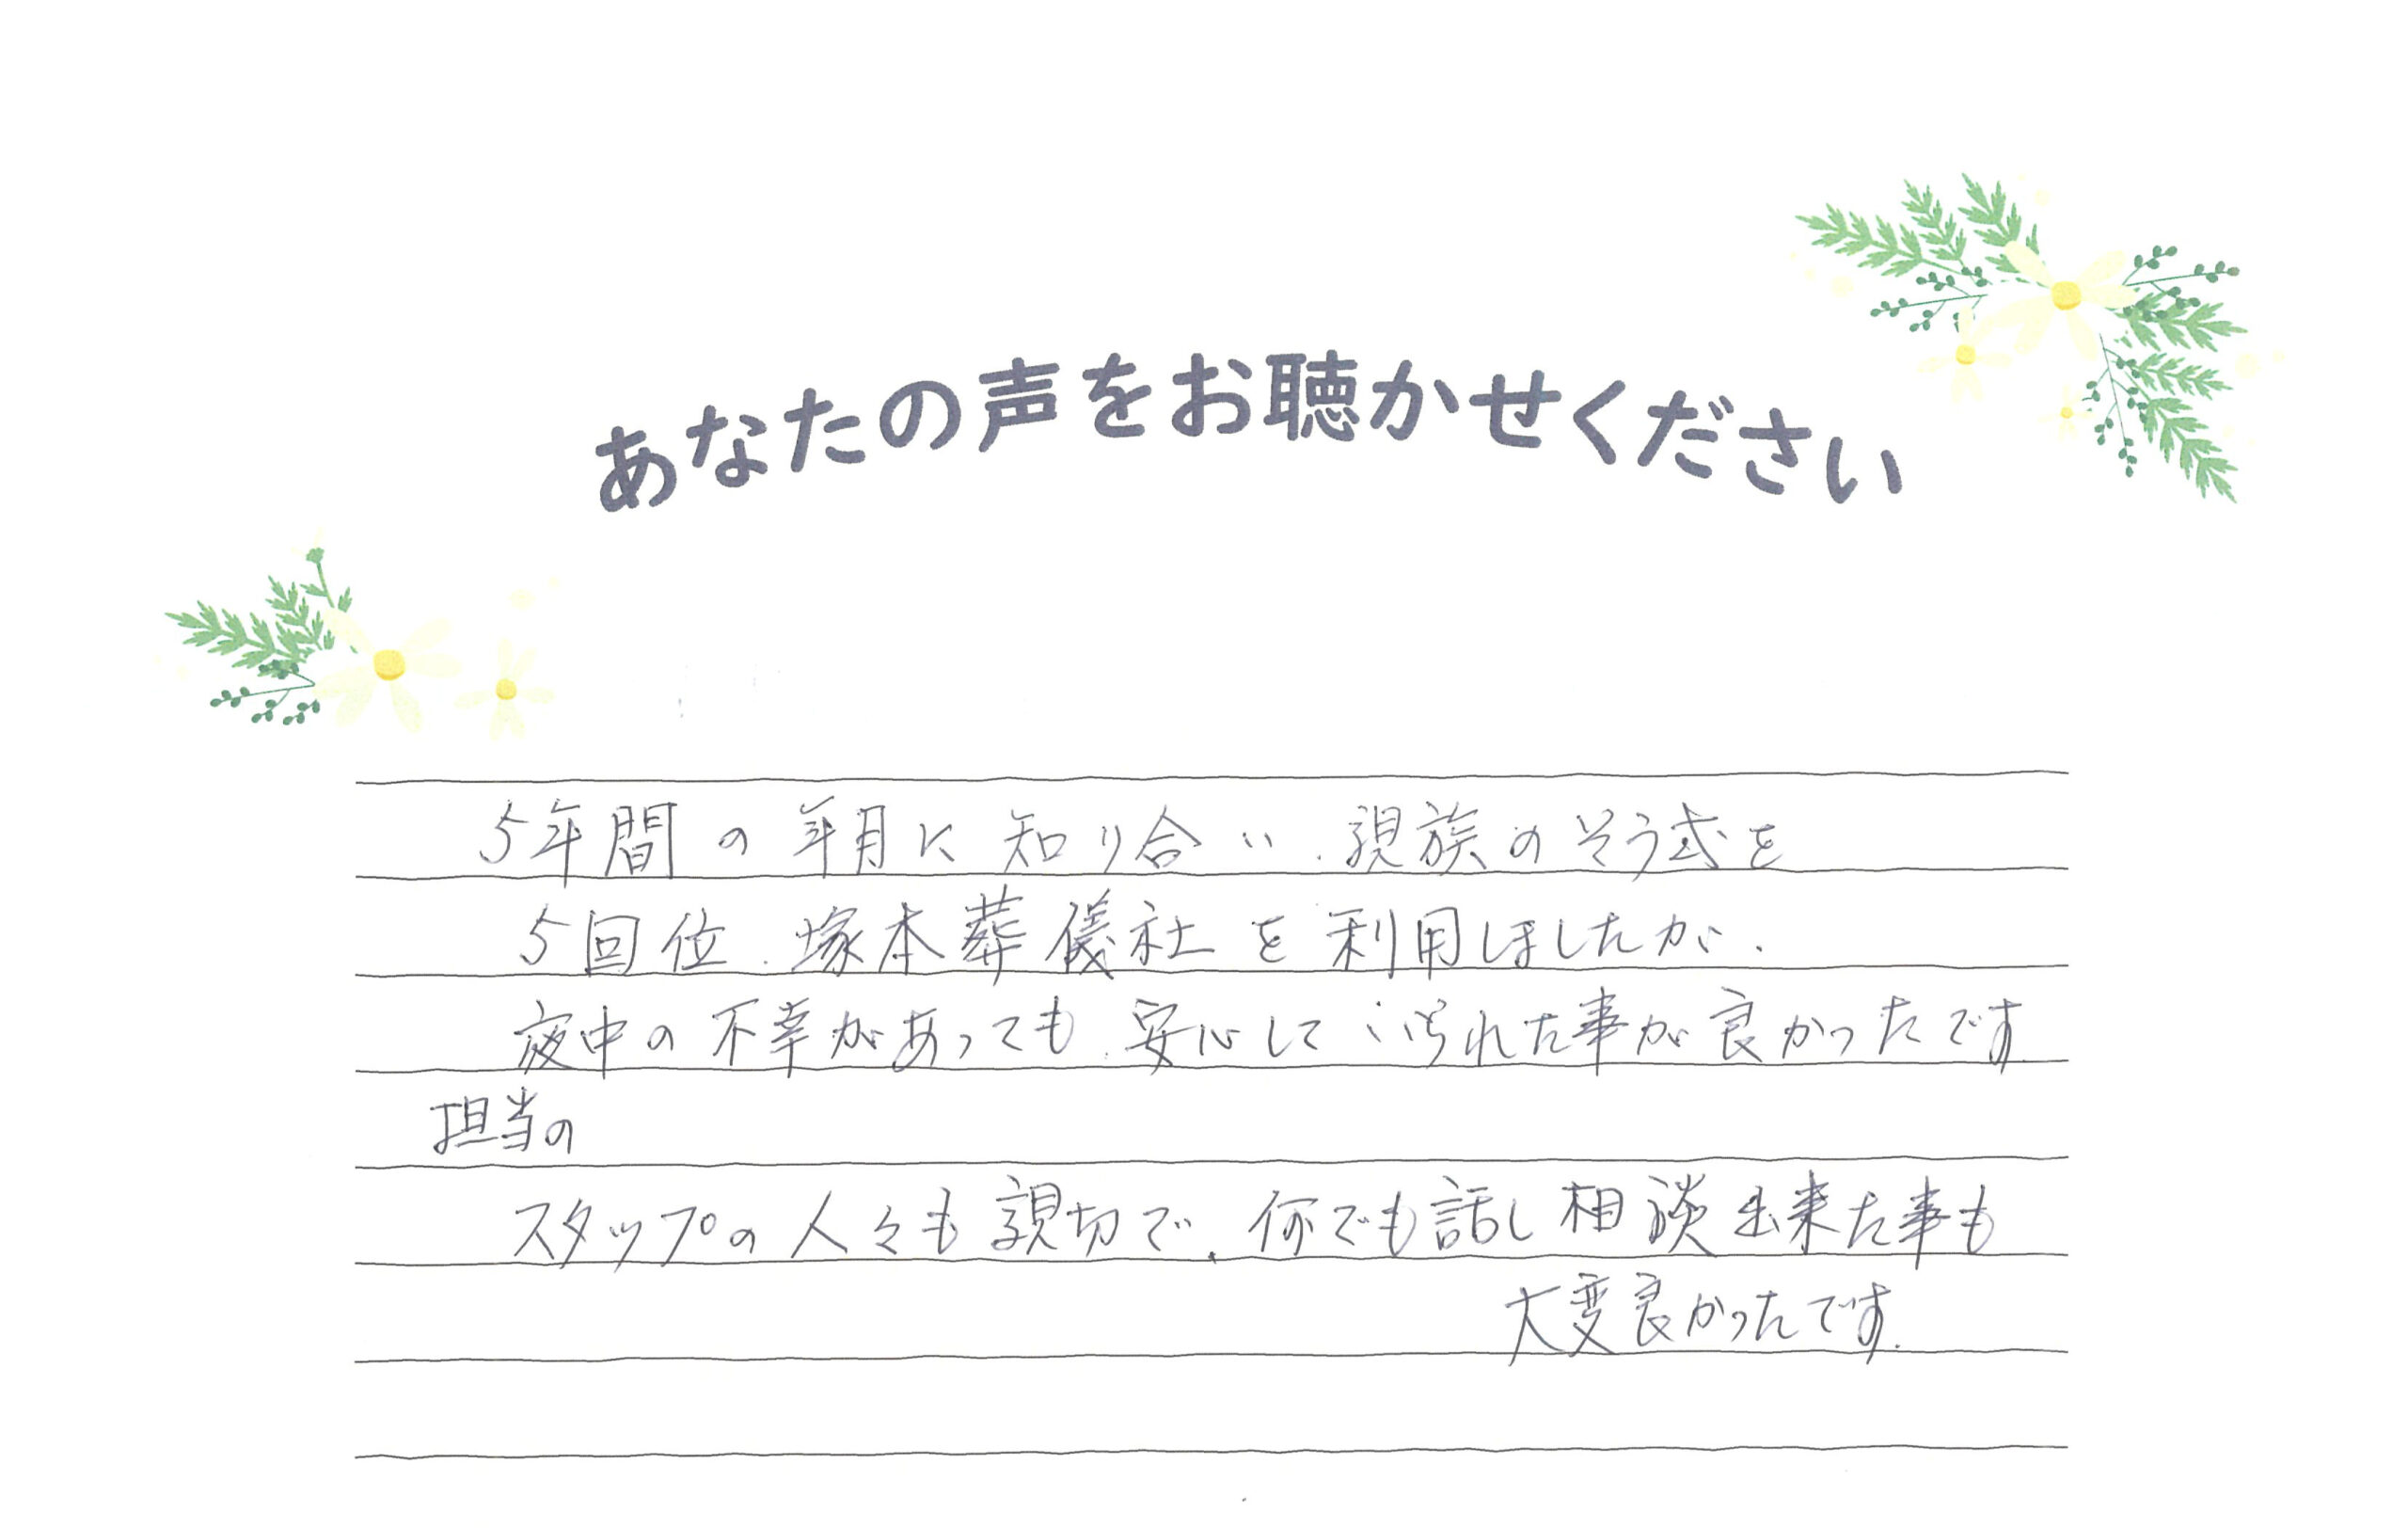 あなたの声をお聴かせください
5年間の年月に知り合い、親族のそう式を
5回位、塚本葬儀社を利用しましたが、
夜中の不幸があっても、安心していられた事が良かったです
担当の
スタップの人々も親切で、何でも話し相談出来た事も
大変良かったです。